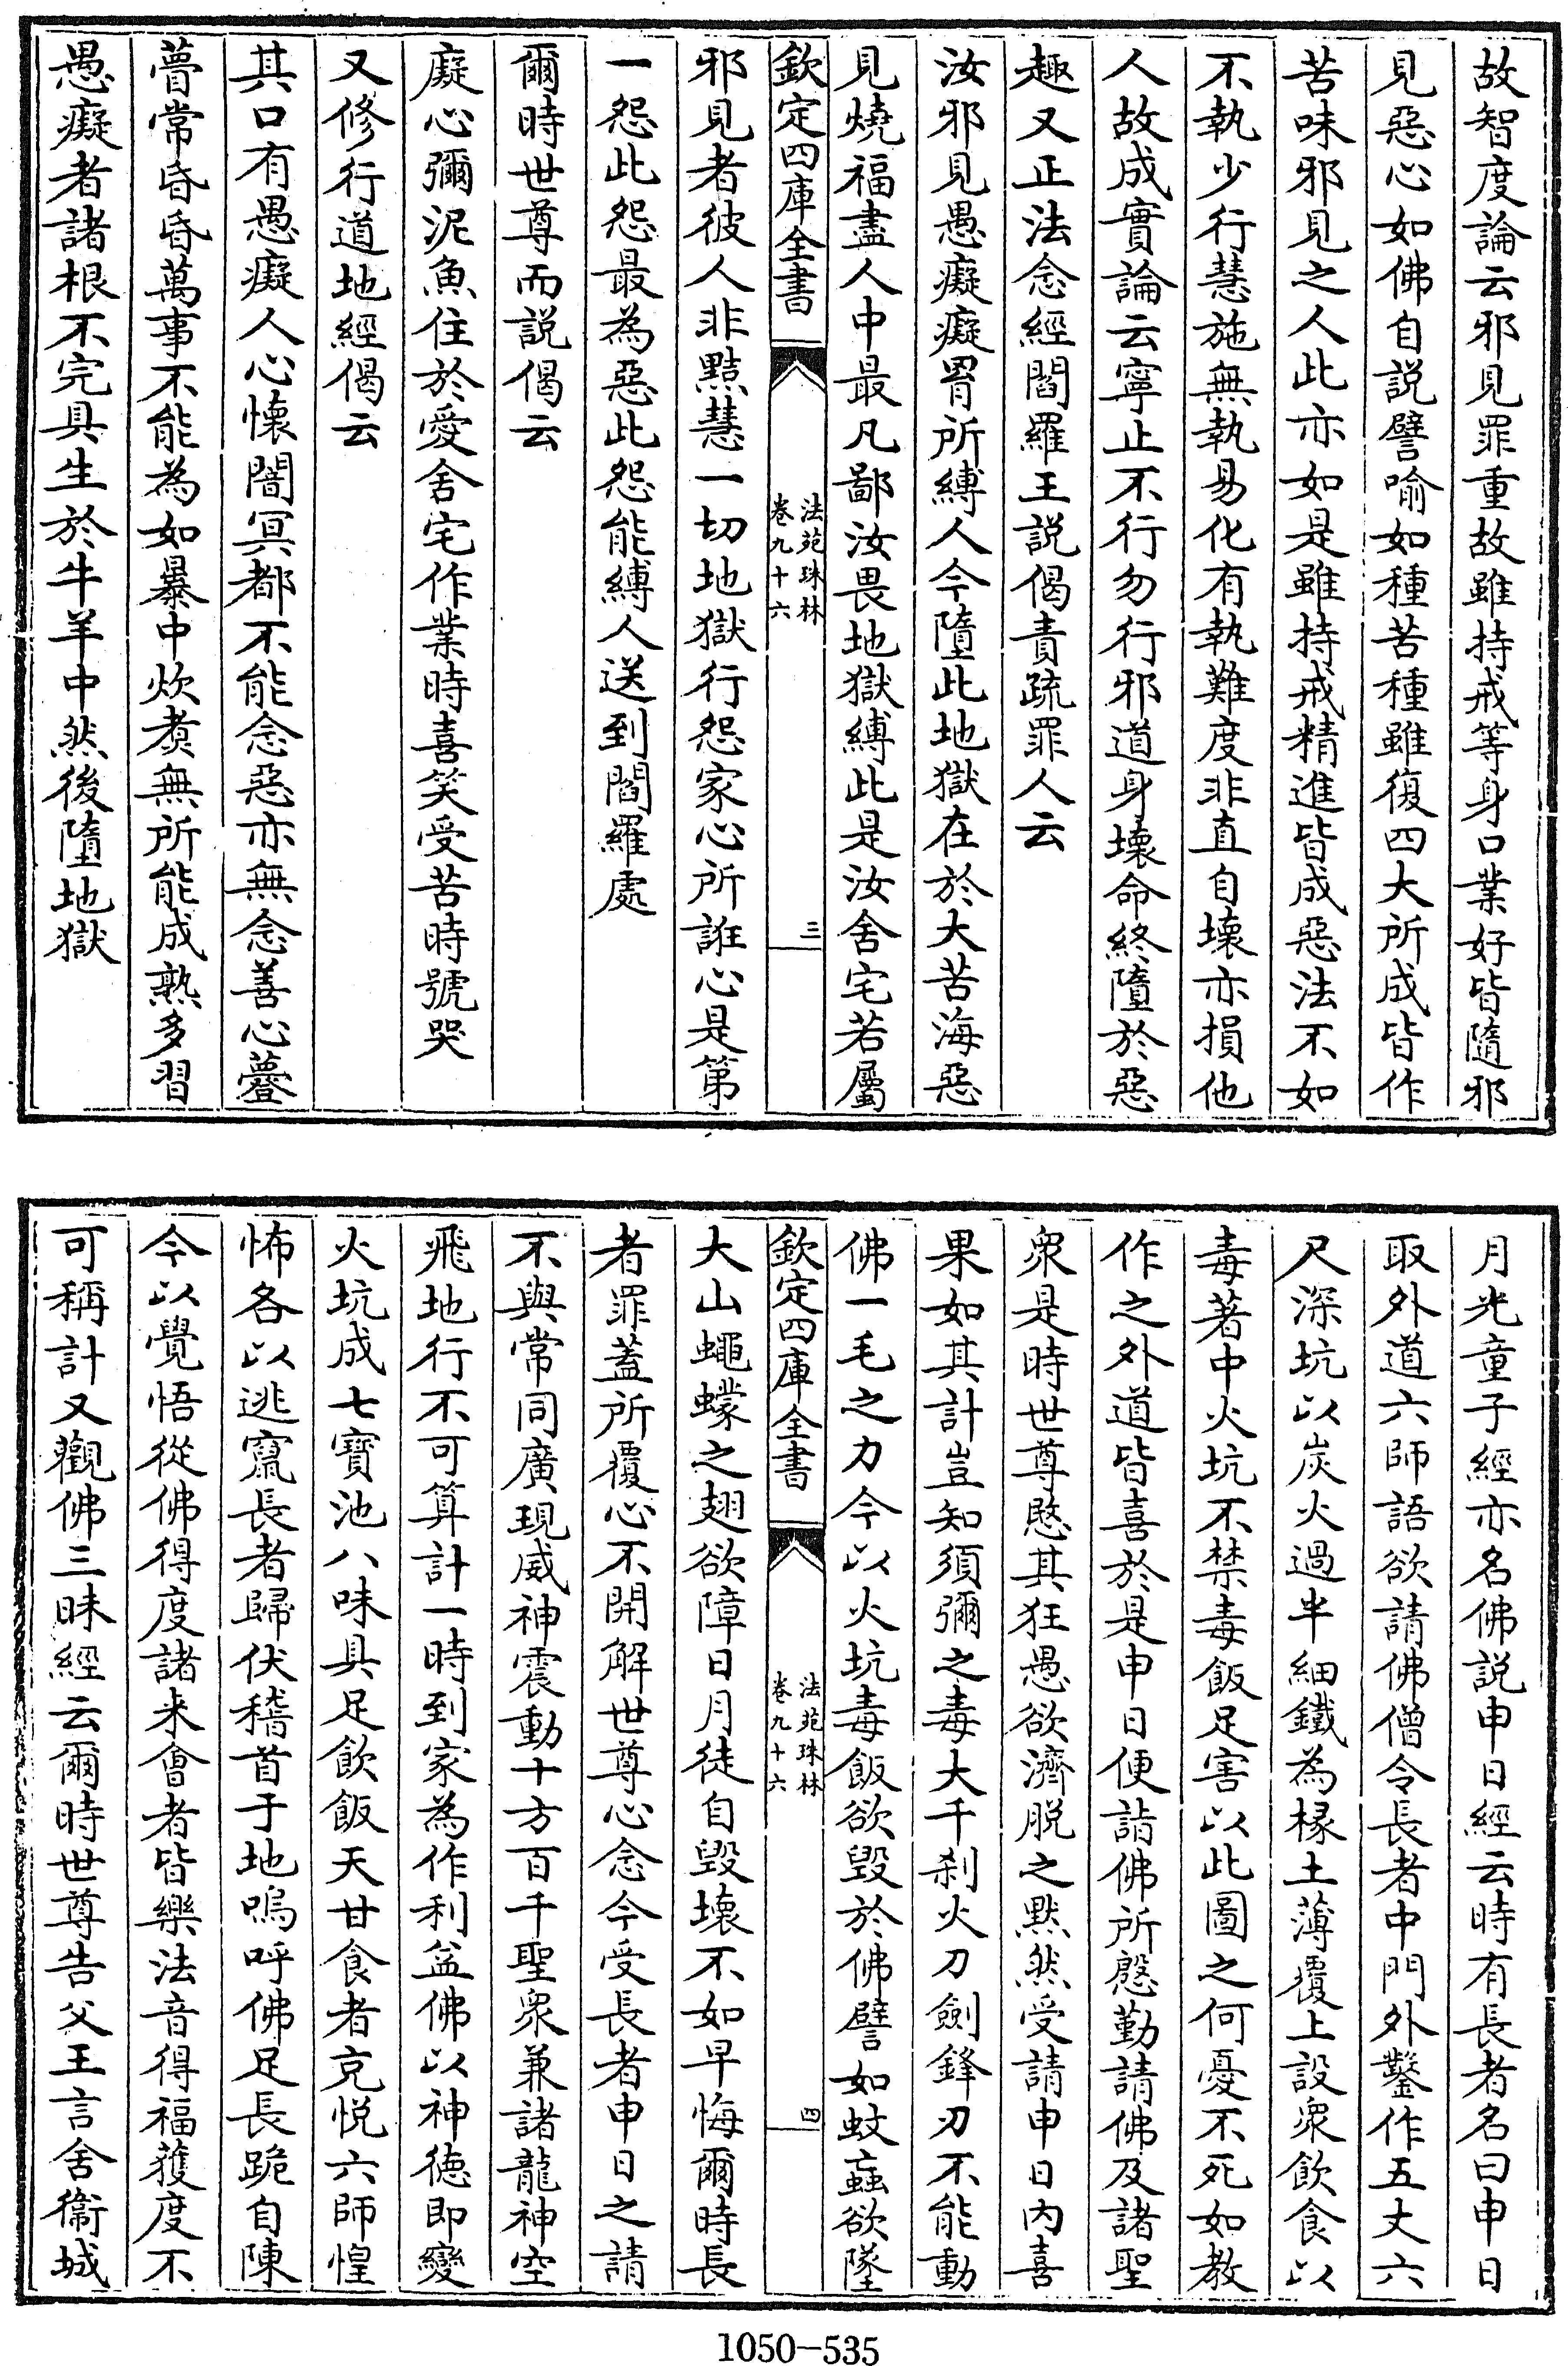 故智度論云邪見罪重故雖持戒等身口業好皆隨邪
見惡心如佛自説譬喻如種苦種雖復四大所成皆作
苦味邪見之人此亦如是雖持戒精進皆成惡法不如
不執少行慧施無執易化有執難度非直自壞亦損他
人故成實論云寧止不行勿行邪道身壞命終墮於惡
趣又正法念經閻羅王説偈責疏罪人云
汝邪見愚癡癡罥所縛人今墮此地獄在於大苦海惡
見燒福盡人中最凡鄙汝畏地獄縛此是汝舍宅若屬
欽定四庫全書
法苑珠林
卷九十六
三
邪見者彼人非黠慧一切地獄行怨家心所誑心是第
一怨此怨最為惡此怨能縛人送到閻羅處
爾時世尊而説偈云
癡心彌泥魚住於愛舍宅作業時喜笑受苦時號哭
又修行道地經偈云
其口有愚癡人心懷闇冥都不能念惡亦無念善心薆
瞢常昏昏萬事不能為如暴中炊煑無所能成熟多習
愚癡者諸根不完具生於牛羊中然後墮地獄
月光童子經亦名佛説申日經云時有長者名曰申日
取外道六師語欲請佛僧令長者中門外鑿作五丈六
尺深坑以炭火過半細鐵為椽土薄覆上設衆飲食以
毒著中火坑不禁毒飯足害以此圖之何憂不死如教
作之外道皆喜於是申日便詣佛所慇勤請佛及諸聖
衆是時世尊愍其狂愚欲濟脱之黙然受請申日内喜
果如其計豈知須彌之毒大千刹火刀劍鋒刃不能動
佛一毛之力今以火坑毒飯欲毀於佛譬如蚊蝱欲墜
欽定四庫全書
法苑珠林
卷九十六
四
大山蠅蠓之翅欲障日月徒自毀壞不如早悔爾時長
者罪蓋所覆心不開解世尊心念今受長者申日之請
不與常同廣現威神震動十方百千聖衆兼諸龍神空
飛地行不可算計一時到家為作利益佛以神徳即變
火坑成七寶池八味具足飲飯天甘食者充悦六師惶
怖各以逃竄長者歸伏稽首于地嗚呼佛足長跪自陳
今以覺悟從佛得度諸來會者皆樂法音得福獲度不
可稱計又觀佛三昧經云爾時世尊告父王言舍衞城
1050-535